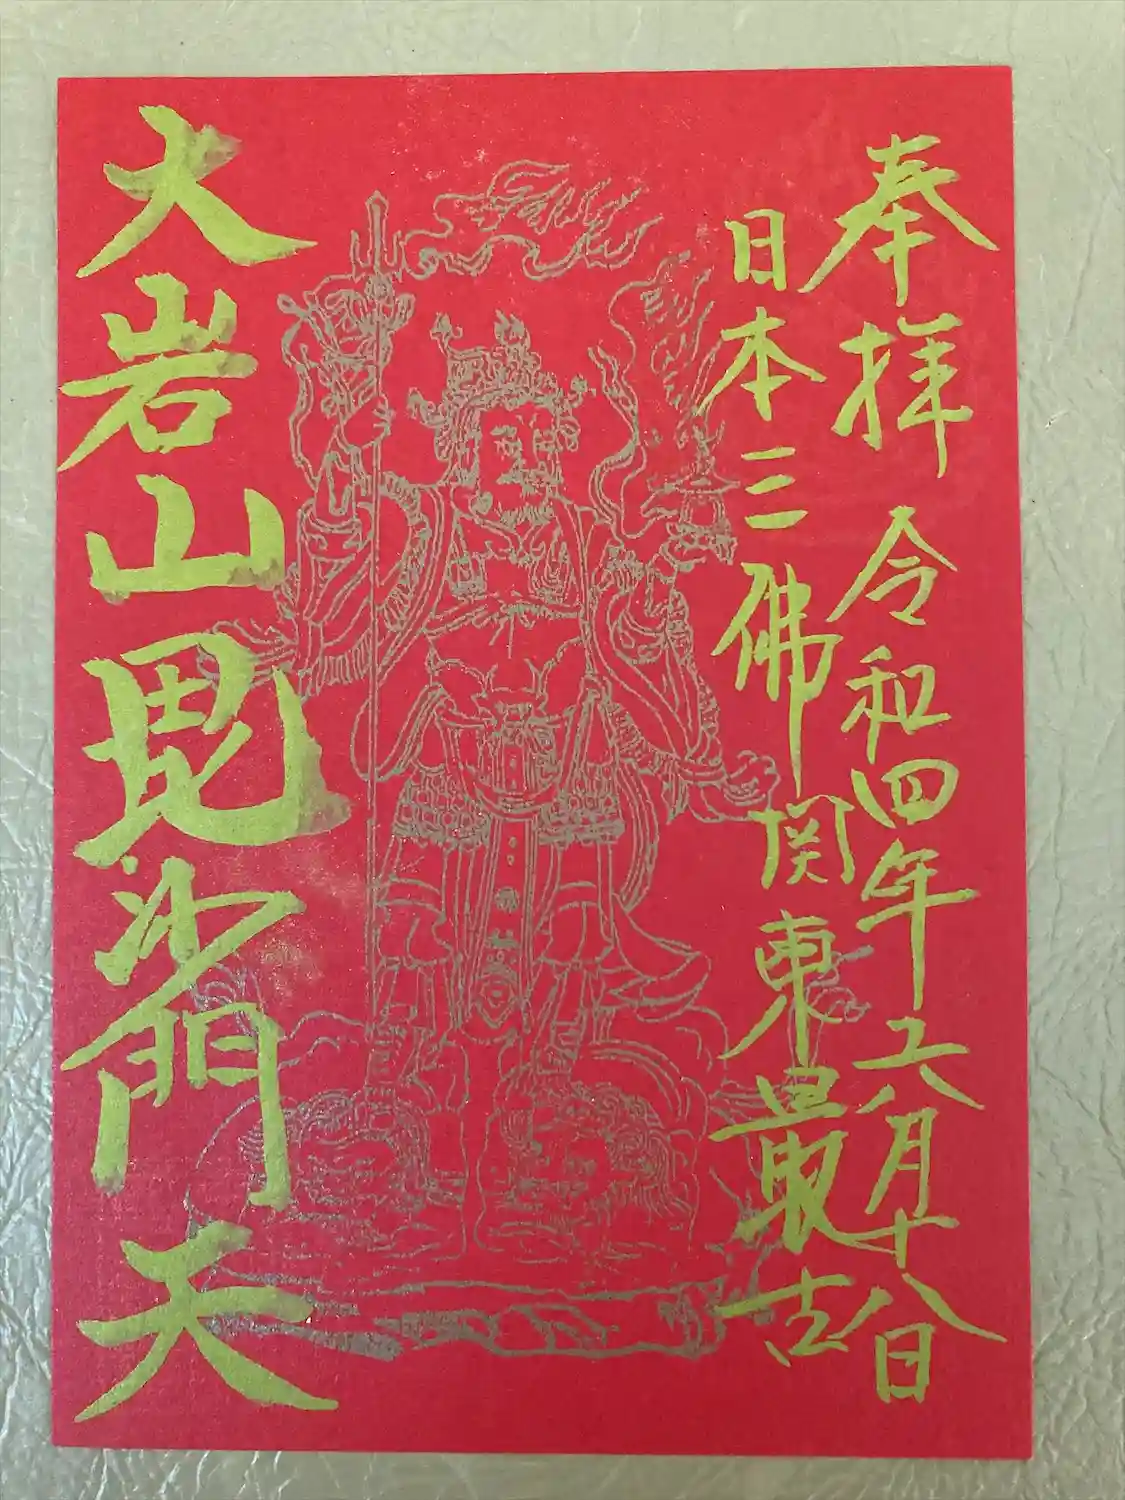 奉拝 令和四年六月十八日
日本三佛関東最古
大岩山毘沙門天